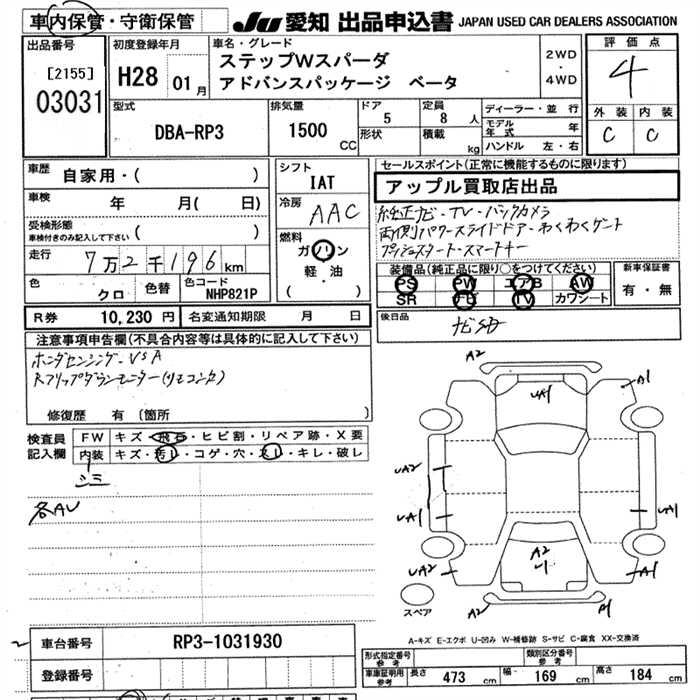 車内保管・守衛保管
JU 愛知 出品申込書 JAPAN USED CAR DEALERS ASSOCIATION
出品番号
[2155]
03031
初度登録年月
H28 01月
車名・グレード
ステップWスパーダ
アドバンスパッケージ ベータ
2WD
・
4WD
評価点
4
外装 内装
C C
型式
DBA-RP3
排気量
1500 CC
ドア
5
形状
定員
8 人
積載
kg
ディーラー・並行
モデル年式 年
ハンドル 左・右
車歴
自家用・( )
車検 年 月( 日)
受検形態
車検付きのみ記入して下さい ( )
走行 7万2千196km
色 クロ
色替
色コード NHP821P
シフト
IAT
冷房
AAC
燃料
ガソリン
軽・油
・( )
セールスポイント(正常に機能するものに限ります)
アップル買取店出品
純正ナビ・TV・バックカメラ
両側パワースライドドア・わくわくゲート
プッシュスタート・スマートキー
装備品(純正品に限り○をつけてください)
PS PW エアB AW
SR ナビ TV カワシート
新車保証書
有・無
R券 10,230円
名変通知期限 月 日
後日品
ナビSD
注意事項申告欄(不具合内容等は具体的に記入して下さい)
ホンダセンシング・VSA
Rフリップダウンモニター(リモコン欠)
修復歴 有 (箇所 )
検査員記入欄
FW キズ・飛石・ヒビ割・リペア跡・X要
内装 キズ・汚れ・コゲ・穴・スレ・キレ・破レ
シミ
各AU
A2
UA1
A1
UA2
UA1
UA1
A2
U1
A1
A2
A1
スペア
A-キズ E-エクボ U-凹み W-補修跡 S-サビ C-腐食 XX-交換済
車台番号 RP3-1031930
登録番号
型式指定番号
参考
類別区分番号
参考
車庫証明用
参考
長さ 473 cm 幅 169 cm 高さ 184 cm